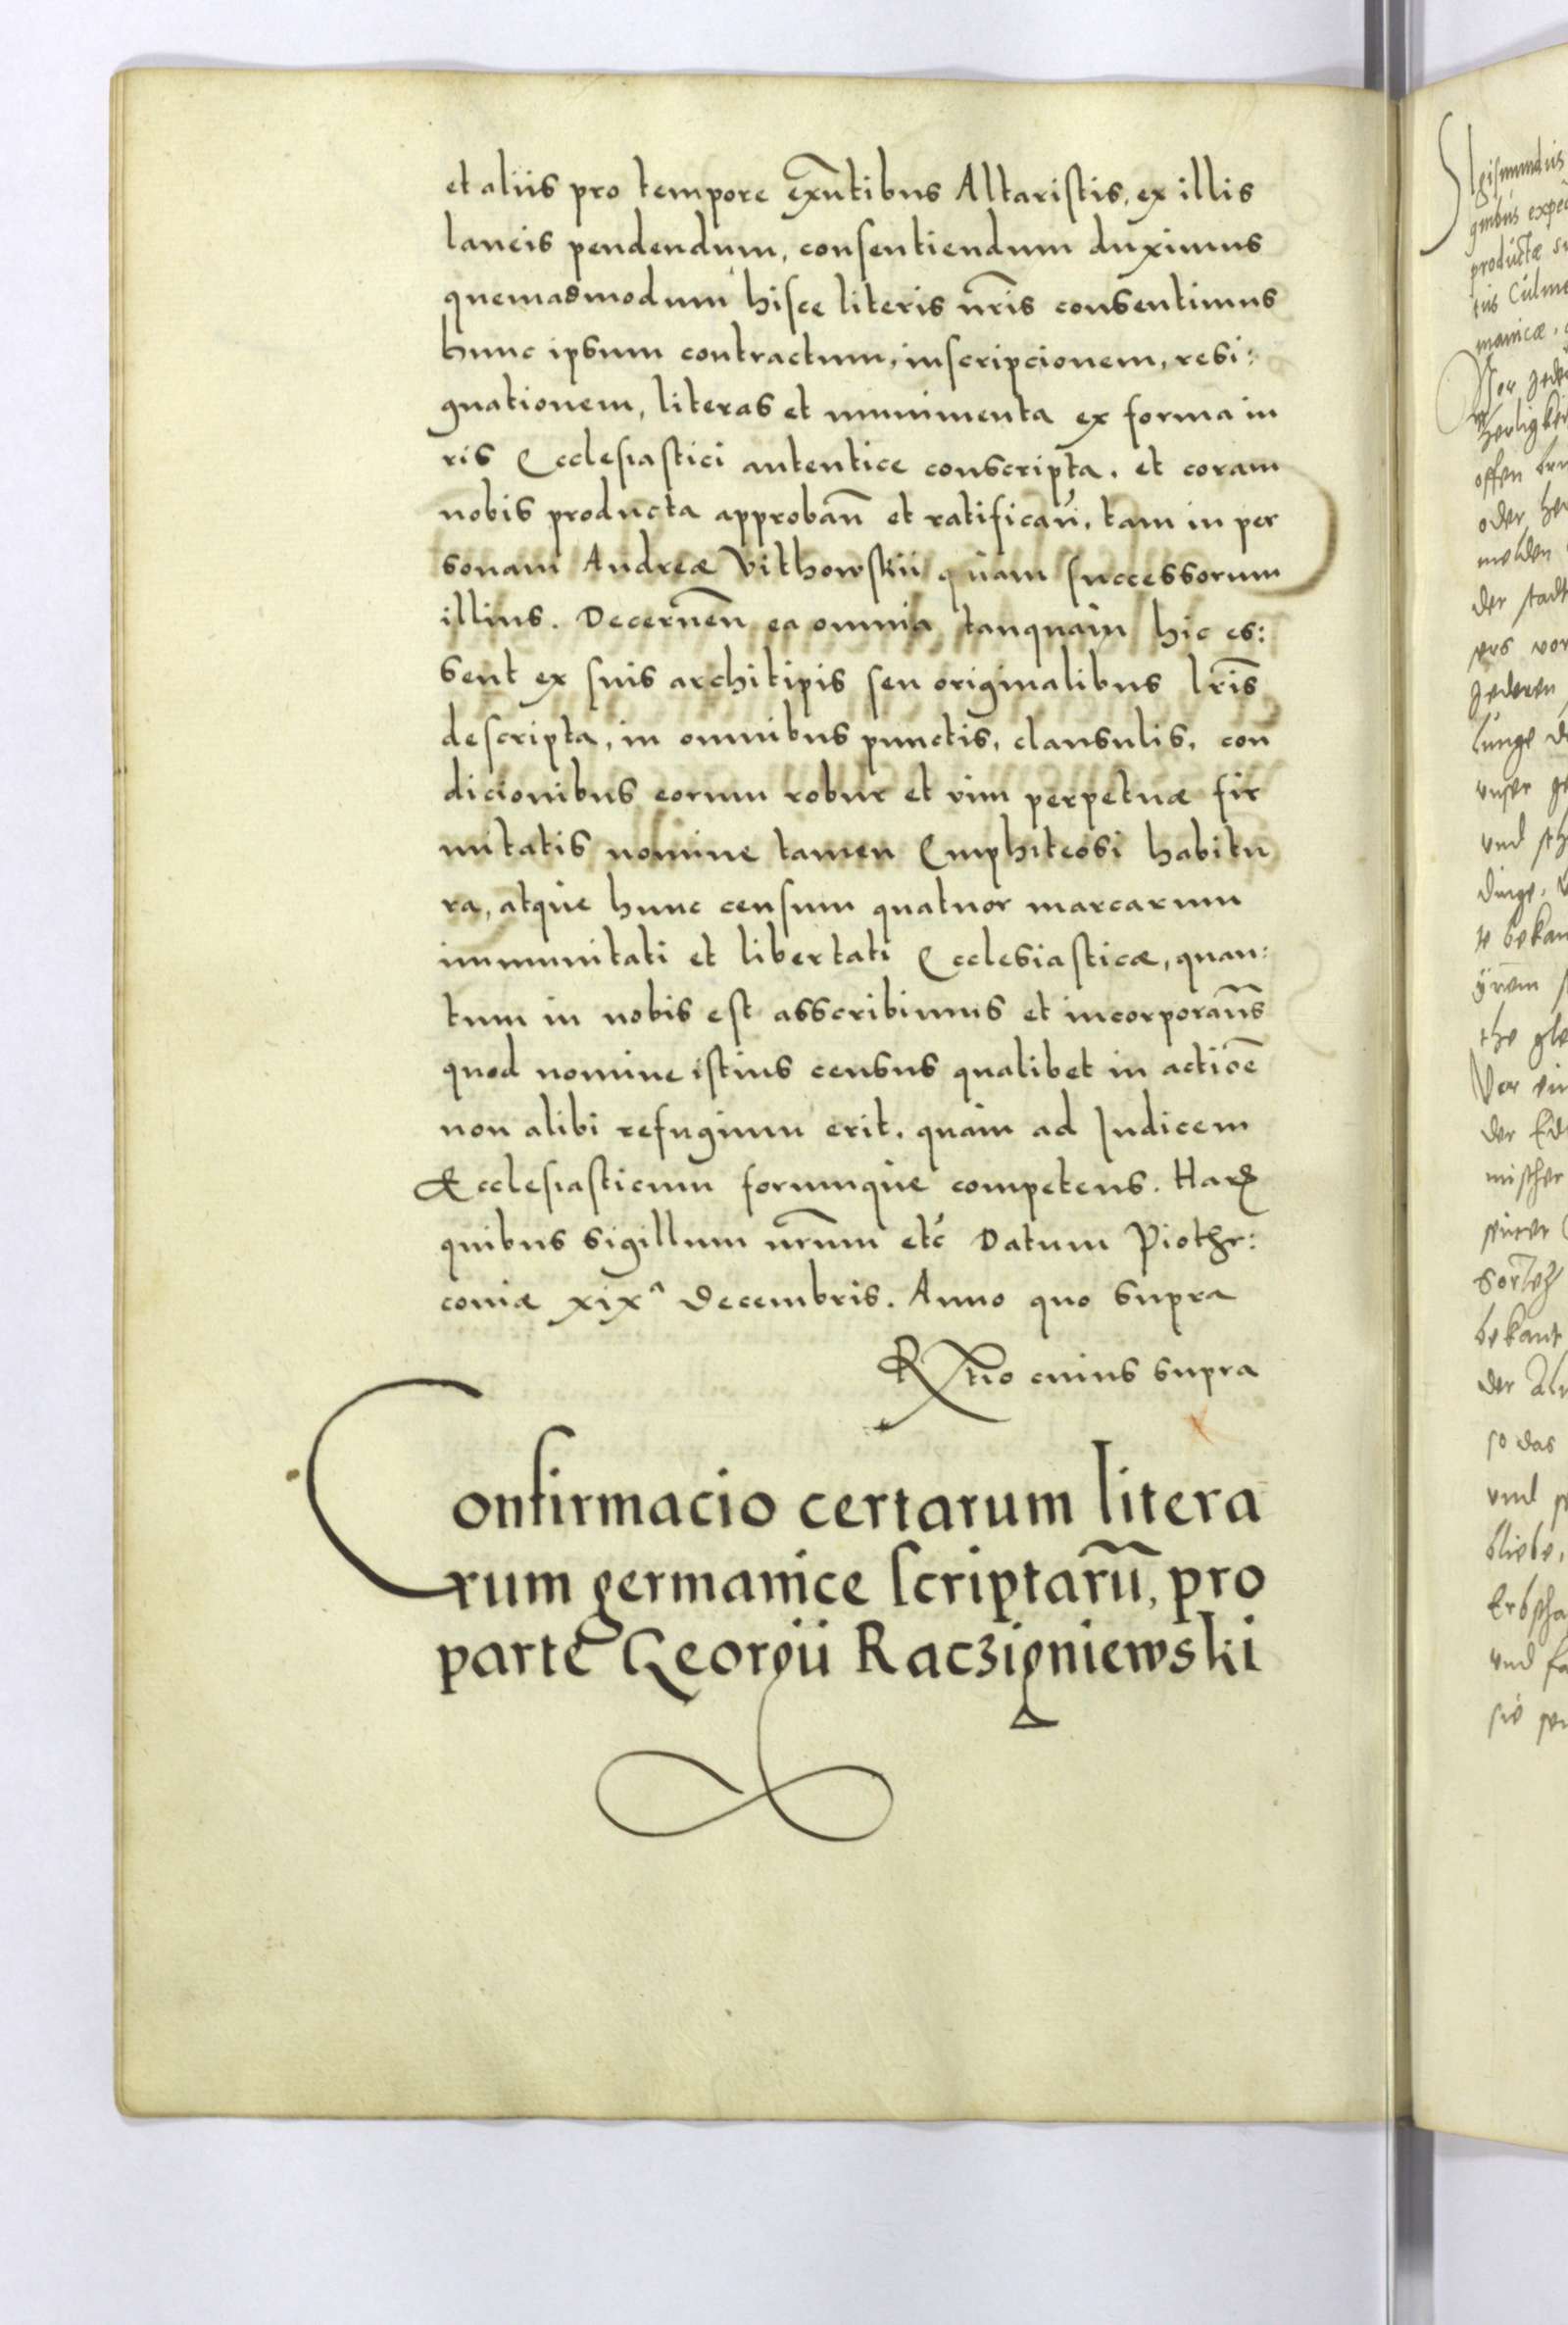 et aliis pro tempore exn̄tibus Altaristis, ex illis
laneis pendendum, consentiendum duximus
quemadmodum hisce literis nr̄is consentimus
hunc ipsum contractum, inscripcionem, resi:
gnationem, literas et munimenta ex forma iu
ris Ecclesiastici autentice conscripta. et coram
nobis producta approban̄ et ratifican̄. tam in per
sonam Andreæ Vithowskii quam successorum
illius. Decernen̄ ea omnia tanquam hic es:
sent ex suis architipis seu originalibus lr̄is
descripta, in omnibus punctis, clausulis, con
dicionibus eorum robur et vim perpetuæ fir
mitatis nomine tamen Emphiteosi habitu
ra, atque hunc censum quatuor marcarum
immunitati et libertati Ecclesiasticæ, quan:
tum in nobis est asscribimus et incorporam̄s
quod nomine istius census qualibet in actiōe
non alibi refugium erit. quam ad Iudicem
Ecclesiasticum forumque competens. Harꝝ
quibus sigillum nr̄um etc̄ Datum Piothr:
coniæ xixᵃ Decembris. Anno quo supra
Rl̄tio cuius supra
Confirmacio certarum litera
rum germanice scriptarū, pro
parte Georgii Raczigniewski
Sigismundus
productæ
manicæ
offen
oder
melden
der stadt
vor
Jederen
vnser
vnd
dinge
der
mischer
bekant
der
so das
vnd
bliebe,
vnd
sie